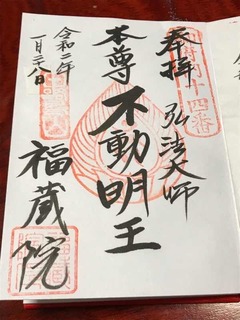 奉拝
弘法大師
本尊
不動明王
福蔵院
令和二年
一月二十八日